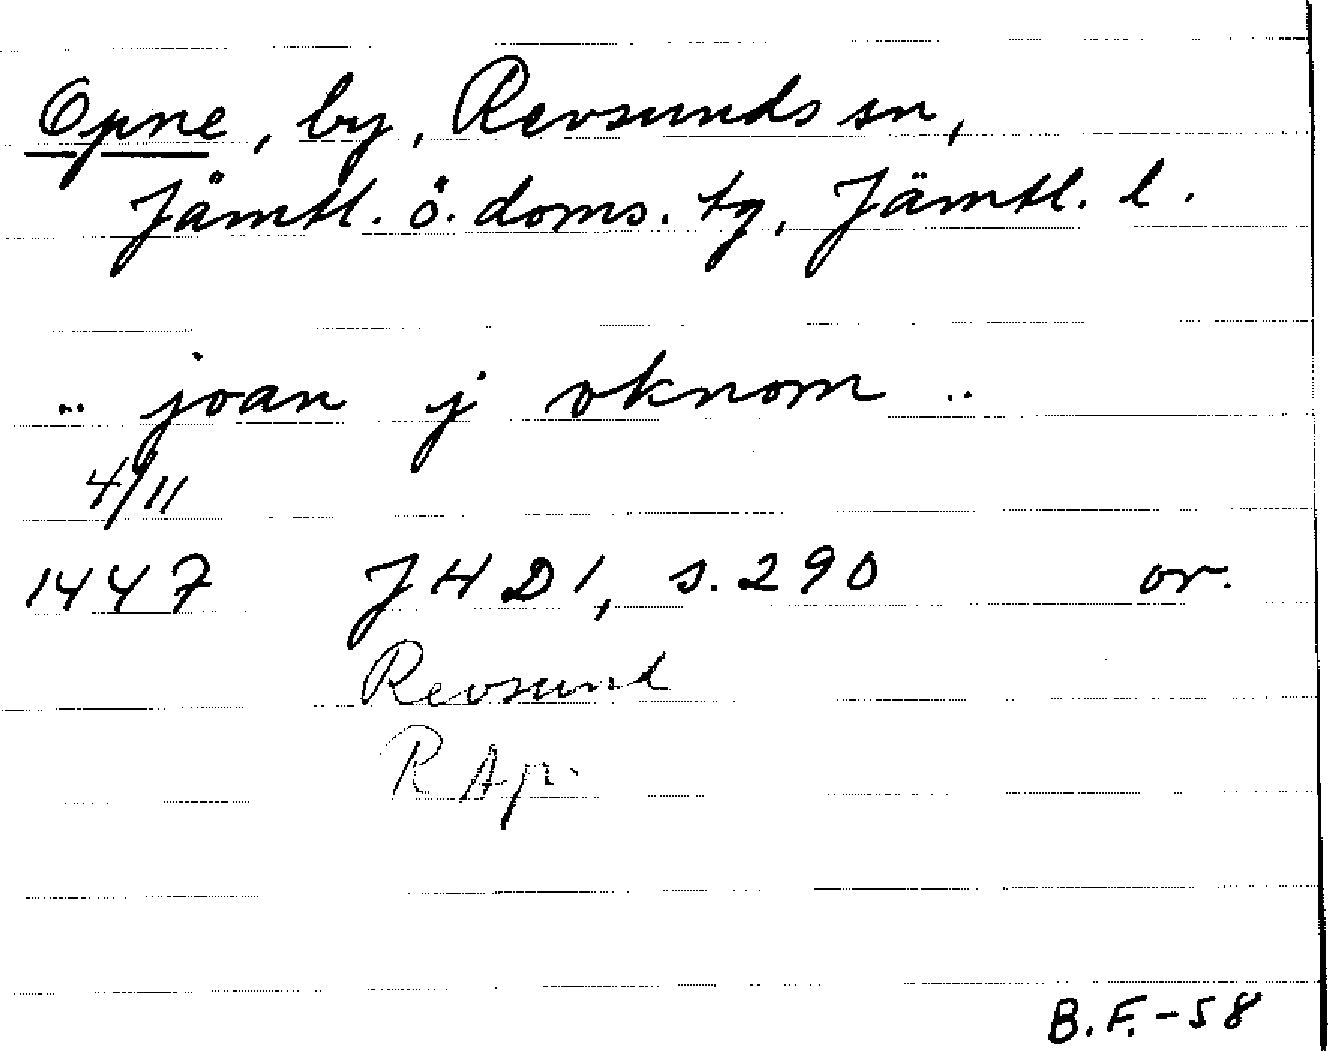 Opne, by, Revsunds sn,
Jämtl. ö. doms. tg, Jämtl. l.
.. joan j oknom ..
4/11
1447 JHD1, s. 290 or.
Revsund
RAp.
B.F.-58